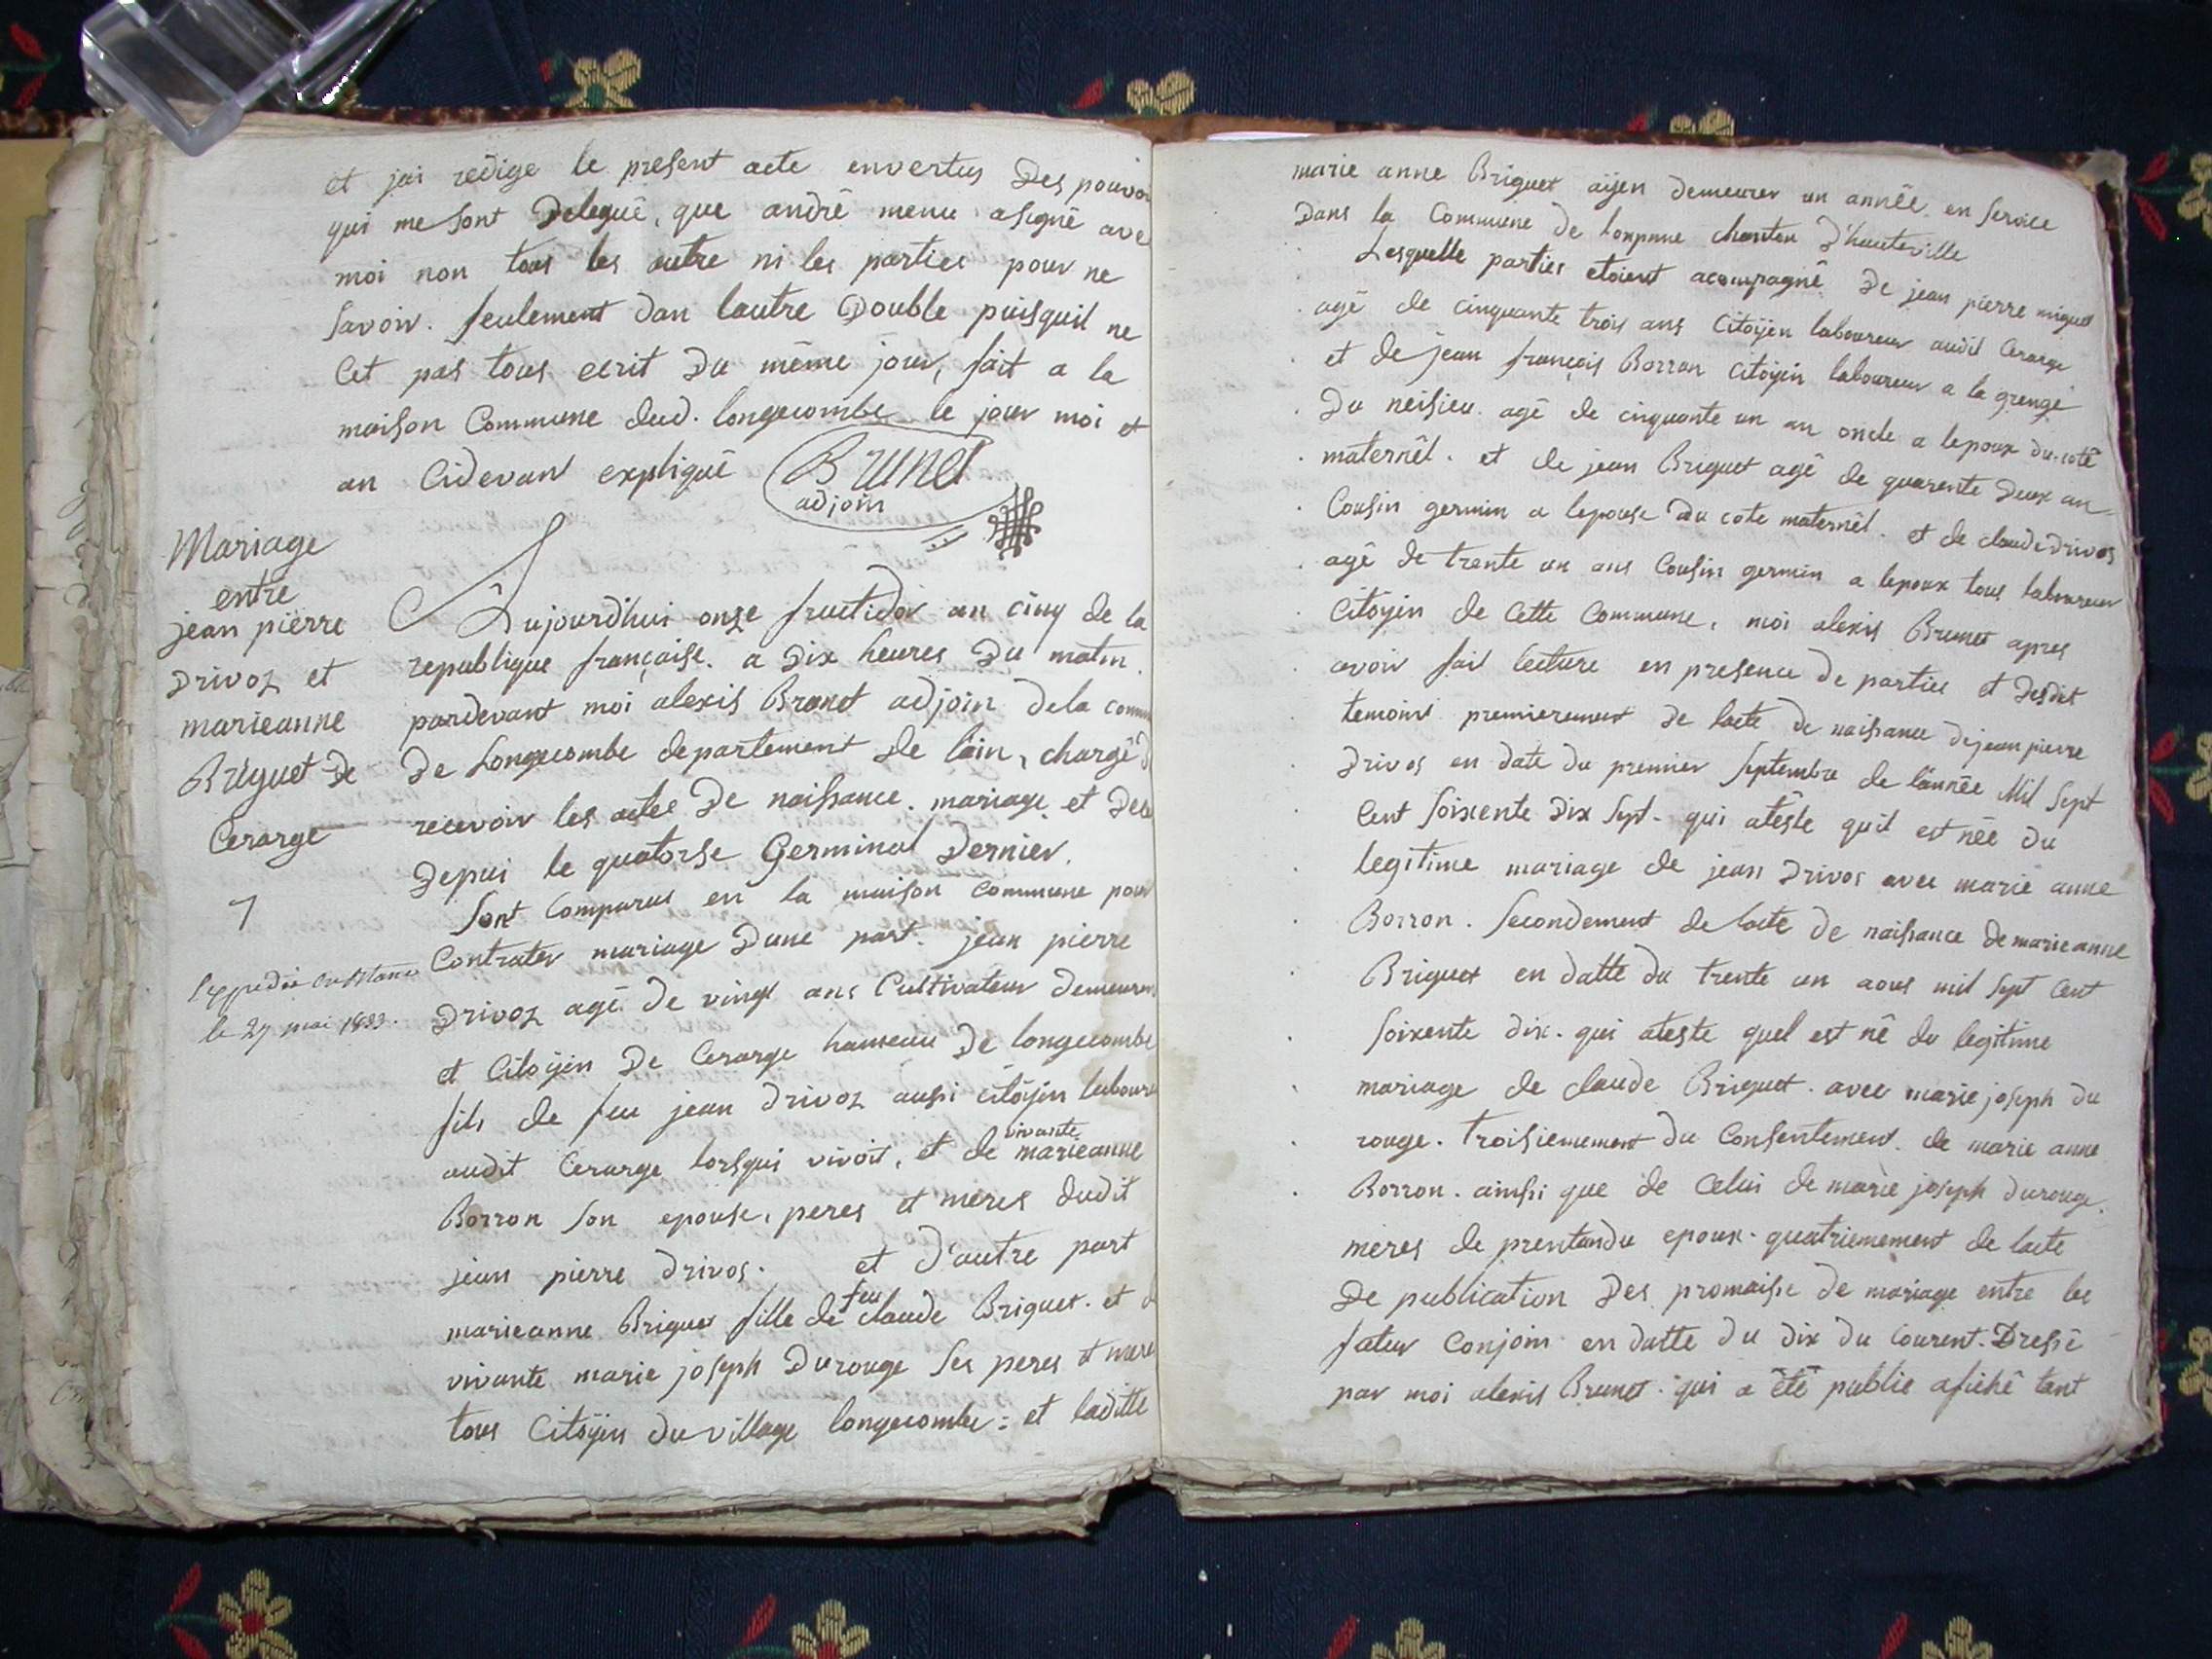 et jai redige le present acte envertus Des pouvoi
qui me sont Delegué, que andré menu asigné ave
moi non tous les autre ni les parties pour ne
savoir. seulement dan lautre Double puisquil ne
Cet pas tous ecrit Du même jour, fait a la
maison Commune dud. longecombe le jour moi et
an Cidevant expliqué Brunet
adjoin
Mariage
entre
jean pierre
Drivoz et
marieanne
Briguet De
Cerarge
7
le 27 mai 1833.
Aujourd'hui onze fructidor an cinq de la
republique française. a Dix heures Du matin.
pardevant moi alexis Brunet adjoin Dela comm
De Longecombe departement de lain, chargé d
recevoir les actes De naissance. mariage et Dec
Depui le quatorse Germinal Dernier.
sont Comparus en la maison Commune pour
Contrater mariage Dune part. jean pierre
Drivoz agé De vingt ans Cultivateur Demeuran
et Citoÿen De Cerarge hameau De longecombe
fils de feu jean Drivoz aussi citoÿen laboure
audit Cerarge lorsqui vivoit, et de vivante marieanne
Borron son epouse, peres et meres dudit
jean pierre Drivos. et d'autre part
marieanne Briguet fille de feu claude Briguet. et d
vivante marie joseph Durouge ses peres et mere
tous Citoÿen du village longecombe : et laditte
marie anne Briguet aÿen demeurer un année en service
Dans la Commune de chanton d'hauteville
Lesquelle parties etoient acompagné De jean pierre miguet
agé de cinquante trois ans Citoÿen laboureur audit Cerarge
et de jean françois Borron Citoÿen laboureur a la grenge
Du neisieu agé de cinquante un an oncle a lepoux du coté
maternêl. et de jean Briguet agé de quarente Deux an
Cousin germin a lepouse du cote maternêl. et de claude drivos
agé de trente un ans Cousin germin a lepoux tous laboureur
Citoÿen de Cette Commune, moi alexis Brunet apres
avoir fait lecture en presence De parties et Desdit
temoins premierement De lacte De naissance dejean pierre
Drivos en date du premier septembre de l'année Mil sept
Cent soixente Dix sept. qui atêste quil est née du
legitime mariage de jean Drivos avec marie anne
Borron. secondement de lacte De naissance De marieanne
Briguet en datte du trente un aous mil sept Cent
soixente dix. qui ateste quel est né du legitime
mariage de claude Briguet. avec marie joseph du
rouge. troisiemement du Consentement. de marie anne
Borron. ainssi que de Celui de marie joseph durouge.
meres de prentandu epoux. quatriemement de lacte
De publication Des promaisse De mariage entre les
futur Conjoin en datte Du Dix Du Courent. Dressé
par moi alexis Brunet. qui a été publie afiché tant